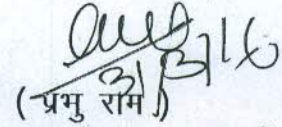 31/3/16
( प्रभु राम )